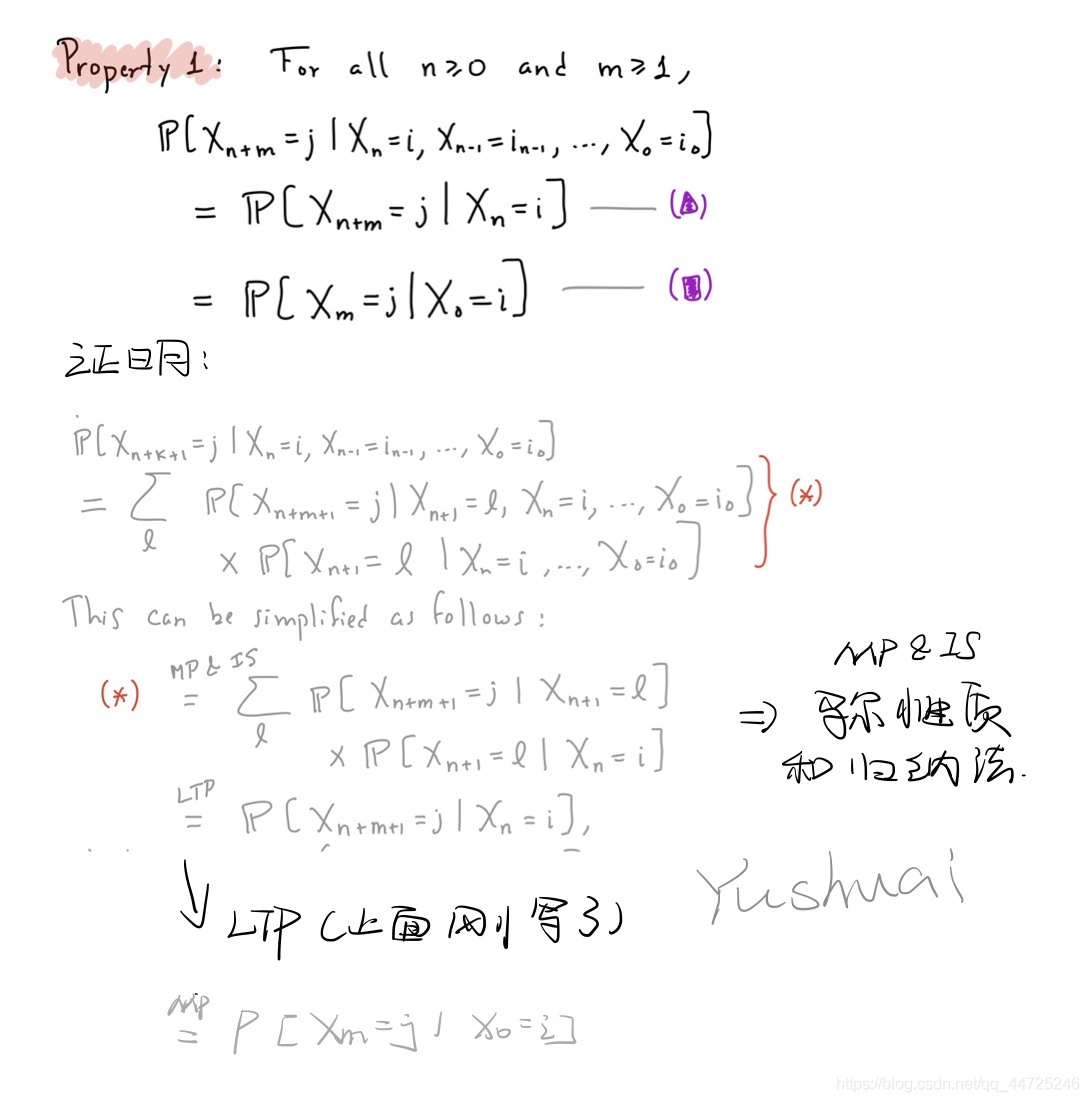 Property 1: For all n≥0 and m≥1,
ℙ[X_{n+m}=j | X_n=i, X_{n-1}=i_{n-1}, ..., X_0=i_0]
= ℙ[X_{n+m}=j | X_n=i] —— (▲)
= ℙ[X_m=j | X_0=i] —— (■)
证明:
ℙ[X_{n+k+1}=j | X_n=i, X_{n-1}=i_{n-1}, ..., X_0=i_0]
= ∑_ℓ ℙ[X_{n+m+1}=j | X_{n+1}=ℓ, X_n=i, ..., X_0=i_0] } (*)
× ℙ[X_{n+1}=ℓ | X_n=i, ..., X_0=i_0]
This can be simplified as follows:
MP & IS
(*) = ∑_ℓ ℙ[X_{n+m+1}=j | X_{n+1}=ℓ]
× ℙ[X_{n+1}=ℓ | X_n=i]
MP & IS
⇒ 马尔性质
和归纳法.
LTP
= ℙ[X_{n+m+1}=j | X_n=i],
Yushuai
↓ LTP (上面刚写了)
MP
= P[X_m=j | X_0=i]
https://blog.csdn.net/qq_44725246